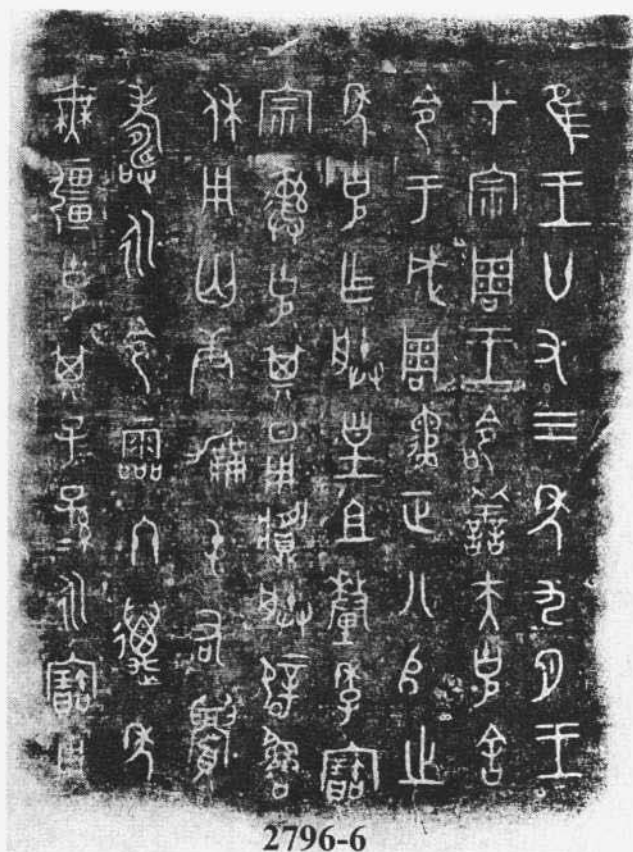 隹王廿又三年九月王
才宗周王命善夫克舍
令于成周遹正八𠂤之
年克乍朕皇且釐季寶
宗彝克其日用䵼朕辟魯
休用匄康屯右眉
壽永令霝冬邁年
無疆克其子孫永寶用
2796-6